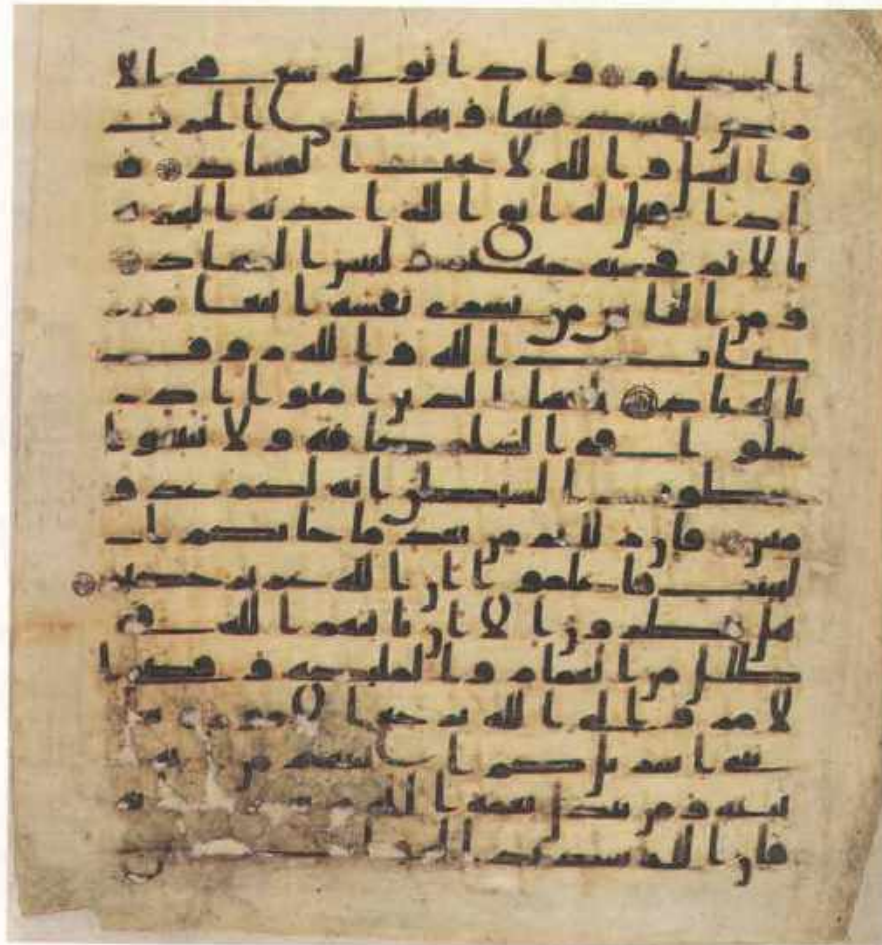 الخصام واذا تولى سعى في الا
رض ليفسد فيها ويهلك الحرث
والنسل والله لا يحب الفساد و
اذا قيل له اتق الله اخذته العزه
بالاثم فحسبه جهنم ولبئس المهاد
ومن الناس من يشرى نفسه ابتغا مر
ضات الله والله روف
بالعباد يايها الذين امنوا اد
خلوا في السلم كافه ولا تتبعوا
خطوت الشيطن انه لكم عدو
مبين فان زللتم من بعد ما جاتكم ا
لبينت فاعلموا ان الله عزيز حكيم
هل ينظرون الا ان ياتيهم الله في
ظلل من الغمام والمليكه وقضى ا
لامر والى الله ترجع الامور
بنى اسريل كم اتينهم من ايه
بينه ومن يبدل نعمه الله من
فان الله شديد العقاب